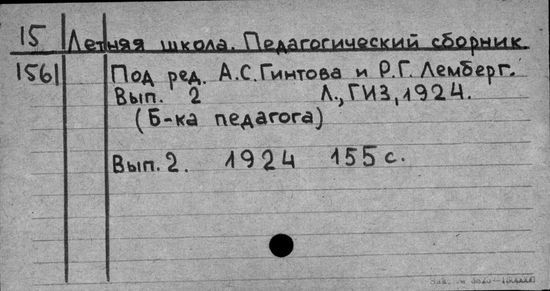 15 Летняя школа. Педагогический сборник.
1561 Под ред. А.С. Гинтова и Р.Г. Лемберг.
Вып. 2 Л., ГИЗ, 1924.
(Б-ка педагога)
Вып. 2. 1924 155 с.